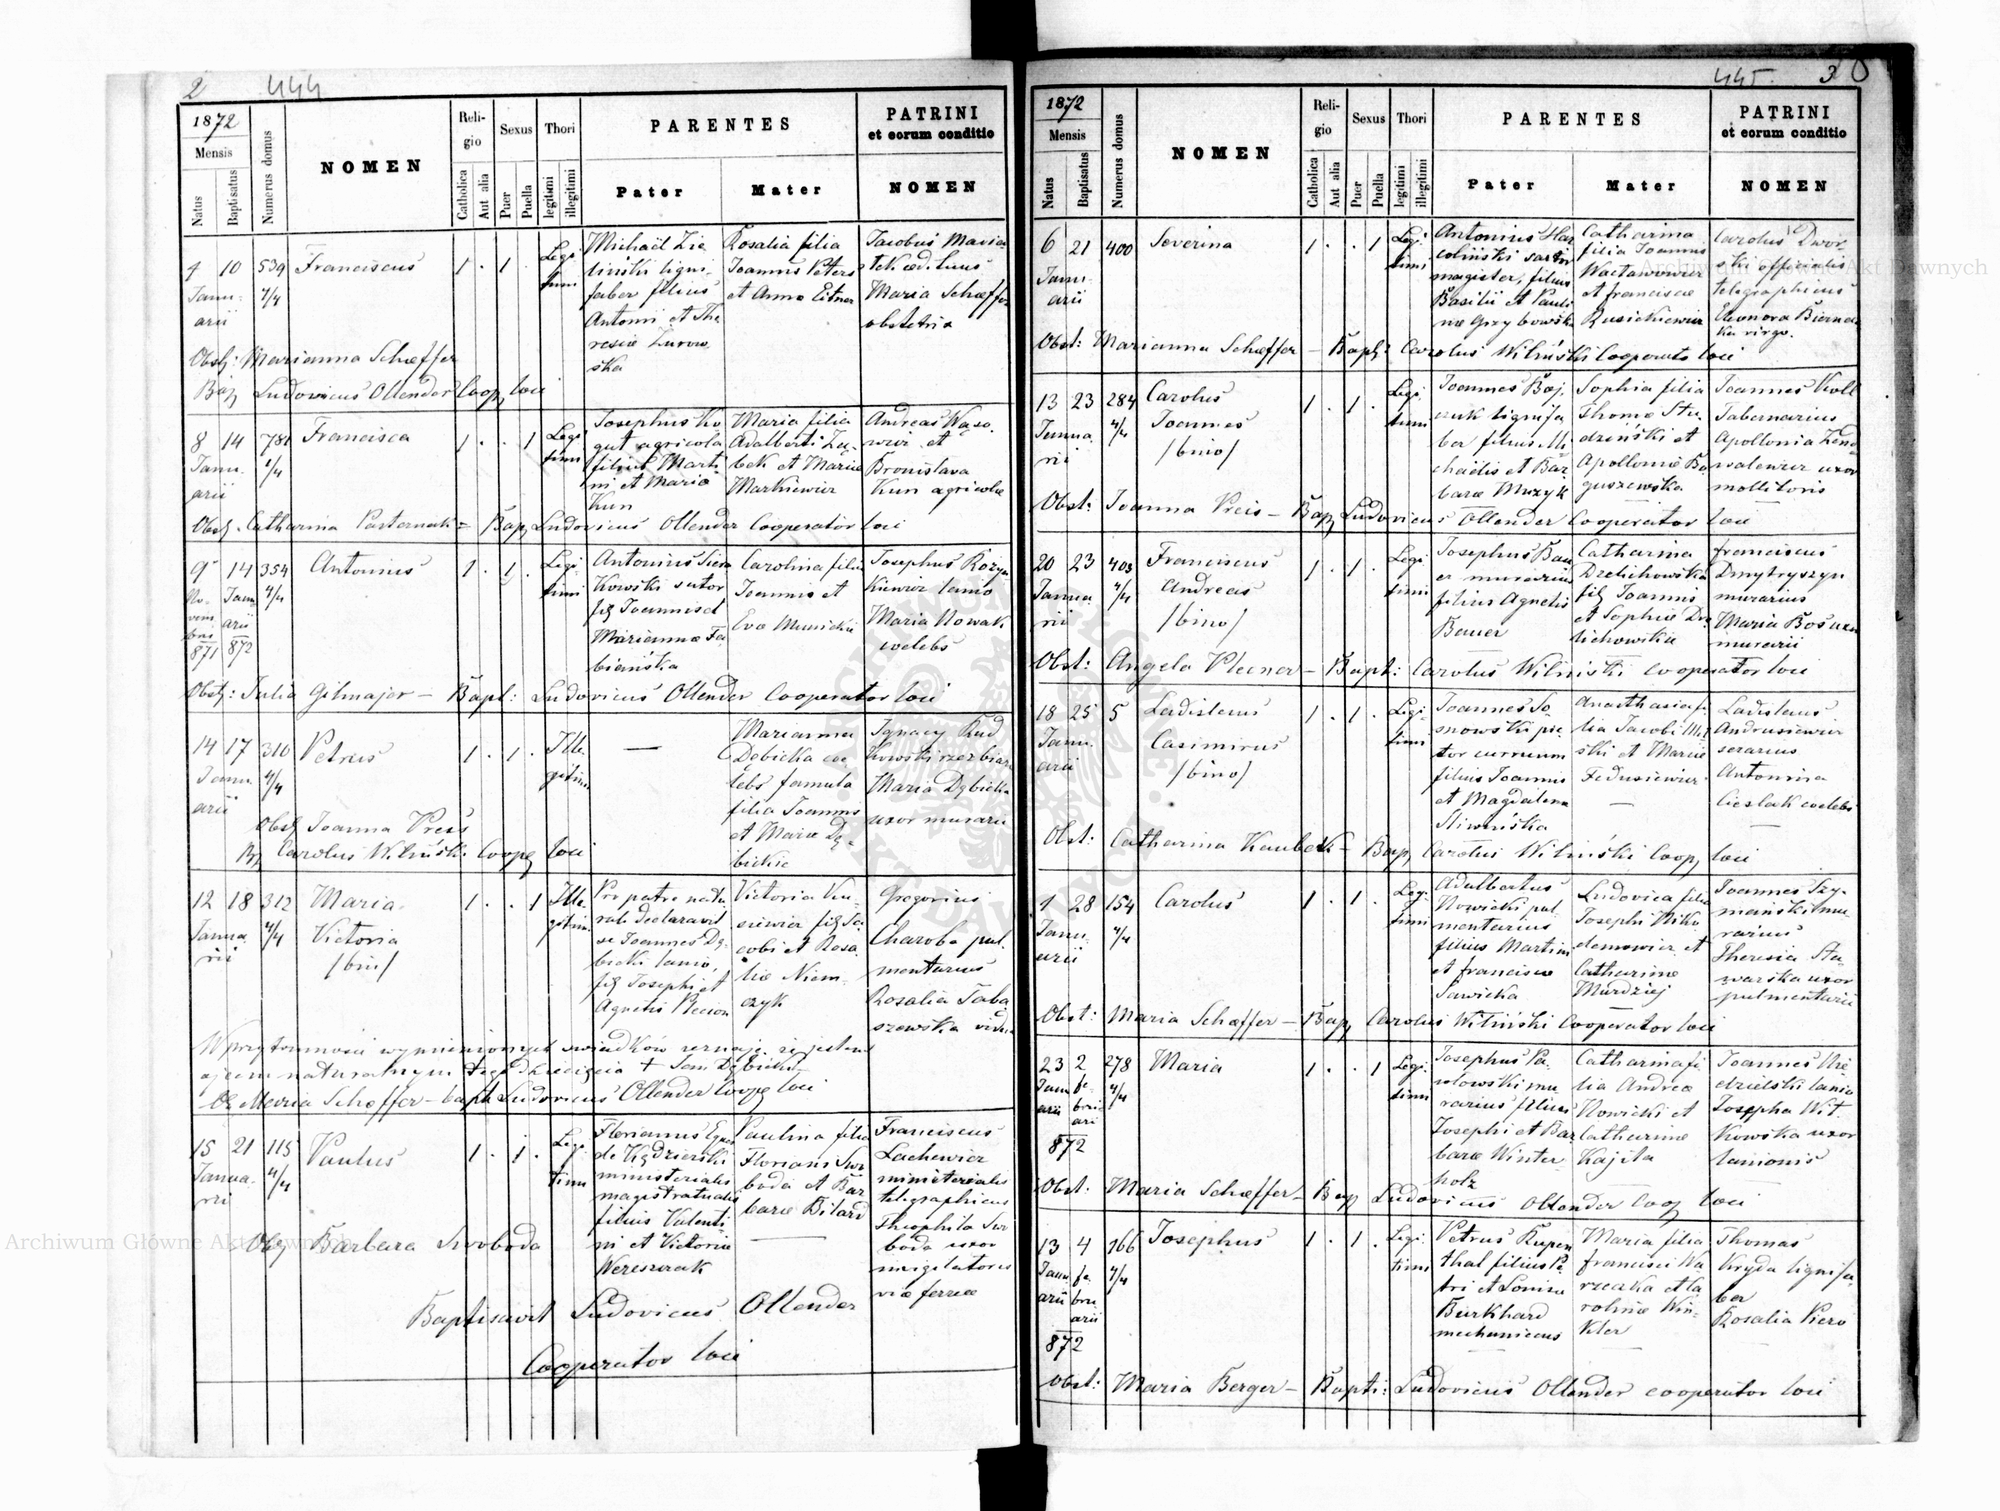 2 444
1872
Mensis
Natus
Baptisatus
Numerus domus
NOMEN
Reli-
gio
Catholica
Aut alia
Sexus
Puer
Puella
Thori
legitimi
illegitimi
PARENTES
Pater
Mater
PATRINI
et eorum conditio
NOMEN
4 10 539 Franciscus 1 . 1 . Legi
timi
Janu-
arii
4/4
Michaël Zie
liński ligni-
faber filius
Antonii et The
resiae Zurow
ska
Rosalia filia
Joannis Peters
et Anna Eitner
Jacobus
Maria Schæffer
obstetrix
Obst: Marianna Schæffer
Bap. Ludovicus Ollender Coop. loci
8 14 781 Francisca 1 . . 1 Legi
timi
Janu-
arii
Josephus Ko
gut agricola
filius Marti
ni et Maria
Kun
Maria filia
Adalberti Zię
bek et Mariae
Markiewicz
Andreas Wąso
wicz et
Bronislava
Kun agricolae
Obst. Catharina Pasternak = Bap. Ludovicus Ollender Cooperator loci
9 14 354 Antonius 1 . 1 . Legi
timi
No-
vem
bris
871
Janu
arii
872
4/4
Antonius Siera
kowski sutor
fil. Joannis et
Marianna Fa
biańska
Carolina filia
Joannis et
Eva
Josephus
kiewicz lanio
Maria Nowak
coelebs
Obst: Julia Gilmajer — Bapt: Ludovicus Ollender Cooperator loci
14 17 310 Petrus 1 . 1 . Ille
gitimi
Janu
arii
4/4
—
Marianna
Dębicka coe
lebs famula
filia Joannis
et Maria Dę-
bickie
Ignacy Rud
kowski rzeźbiarz
Maria Dębicka
uxor murarii
Obst. Joanna Preis
Bp. Carolus Wiliński Coop. loci
12 18 312 Maria 1 . . 1 Ille
gitimi
Janua
rii
4/4
Victoria
/bin/
Pro patre natu
rali declaravit
se Joannes Dę
bicki lanio,
fil. Josephi et
Agnetis
Victoria
fil. Ja
cobi et Rosa
liae Niem
czyk
Gregorius
Charoba pul
mentarius
Rosalia Taba
szewska vidua
W przytomności wymienionych świadków zeznaję że jestem
ojcem naturalnym tego dziecięcia + Jan Dębicki
Ob. Maria Schæffer — bapt. Ludovicus Ollender Coop. loci
15 21 115 Paulus 1 . 1 . Legi
timi
Janua-
rii
4/4
Florianus Eques
de Kędzierski
ministerialis
magistratualis
filius Valenti-
ni et Victoria
Wereszczak
Paulina filia
Floriani Swo
boda et Bar
barae Bilard
Franciscus
Lachewicz
ministerialis
telegraphicus
Theophila Swo
boda uxor
vigilatoris
viae ferreae
Ob. Barbara Swoboda
Baptisavit Ludovicus Ollender
Cooperator loci
445. 3
1872
Mensis
Natus
Baptisatus
Numerus domus
NOMEN
Reli-
gio
Catholica
Aut alia
Sexus
Puer
Puella
Thori
legitimi
illegitimi
PARENTES
Pater
Mater
PATRINI
et eorum conditio
NOMEN
6 21 400 Severina 1 . . 1 Legi
timi
Janu-
arii
Antonius
sartor
magister, filius
Basilii et Pauli
nae Grzybowska
Catharina
filia Joannis
Wacławowicz
et Franciscae
Rusickiewicz
Carolus Dwor-
ski officialis
telegraphicus
Eleonora Biernac
ka virgo.
Obst: Marianna Schæffer — Bapt: Carolus Wiliński Cooperator loci
13 23 284 Carolus 1 . 1 . Legi
timi
Janua
rii
4/4
Joannes
/bino/
Joannes Boj
czuk lignifa
ber filius Mi
chaëlis et Bar
barae Muzyk
Sophia filia
Thomae Stu
dziński et
Apolloniae Bo
guszewska
Joannes Woll
Tabernarius
Apollonia
uxor
mollitoris
Obst: Joanna Preis — Bap. Ludovicus Ollender Cooperator loci
20 23 403 Franciscus 1 . 1 . Legi
timi
Janua
rii
4/4
Andreas
/bino/
Josephus Bau
er murarius
filius Agnetis
Bauer
Catharina
Dzelichowska
fil. Joannis
et Sophiae Dze
lichowska
Franciscus
Dmytryszyn
murarius
Maria Boś uxor
murarii
Obst: Angela Plecner — Bapt: Carolus Wiliński Cooperator loci
18 25 5 Ladislaus 1 . 1 . Legi-
timi
Janu
arii
Casimirus
/bino/
Joannes So
snowski pic
tor curruum
filius Joannis
et Magdalena
Śliwińska
Anasthasia fi
lia Jacobi
ski et Mariae
Fedusiewicz
—
Ladislaus
Andrusiewicz
serarius
Antonina
Cieslak coelebs
—
Obst: Catharina Kaubek — Bap. Carolus Wiliński Coop. loci
1 28 154 Carolus 1 . 1 . Legi
timi
Janu
arii
4/4
Adalbertus
Nowicki pul
mentarius
filius Martini
et Franciscae
Sawicka
Ludovica filia
Josephi Niko
demowicz et
Catharinae
Murdziej
Joannes Szy-
mański mu
rarius
Theresia Sta
warska uxor
pulmentarii
Obst: Maria Schæffer — Bap. Carolus Wiliński Cooperator loci
23 2 278 Maria 1 . . 1 Legi
timi
Janu
arii
fe-
bru
arii
4/4
872
Josephus Pa
wlowski mu
rarius filius
Josephi et Bar
barae Winter
holz
Catharina fi
lia Andreae
Nowicki et
Catharinae
Kajita
Joannes Nie
dzielski lanio
Josepha Wit
kowska uxor
lanionis
Obst: Maria Schæffer — Bap. Ludovicus Ollender Coop. loci
13 4 166 Josephus 1 . 1 . Legi
timi
Janu
arii
fe
bru
arii
4/4
872
Petrus Rupen
thal filius Pe-
tri et Louisae
Burkhard
mechanicus
Maria filia
Francisci Wa
rzecka et Ca
rolinae Win-
kler
Thomas
Kryda lignifa
ber
Rosalia Piero
Obst: Maria Berger — Bapti: Ludovicus Ollender cooperator loci
Archiwum Główne Akt Dawnych
Archiwum Główne Akt Dawnych
ARCHIWUM GŁÓWNE AKT DAWNYCH